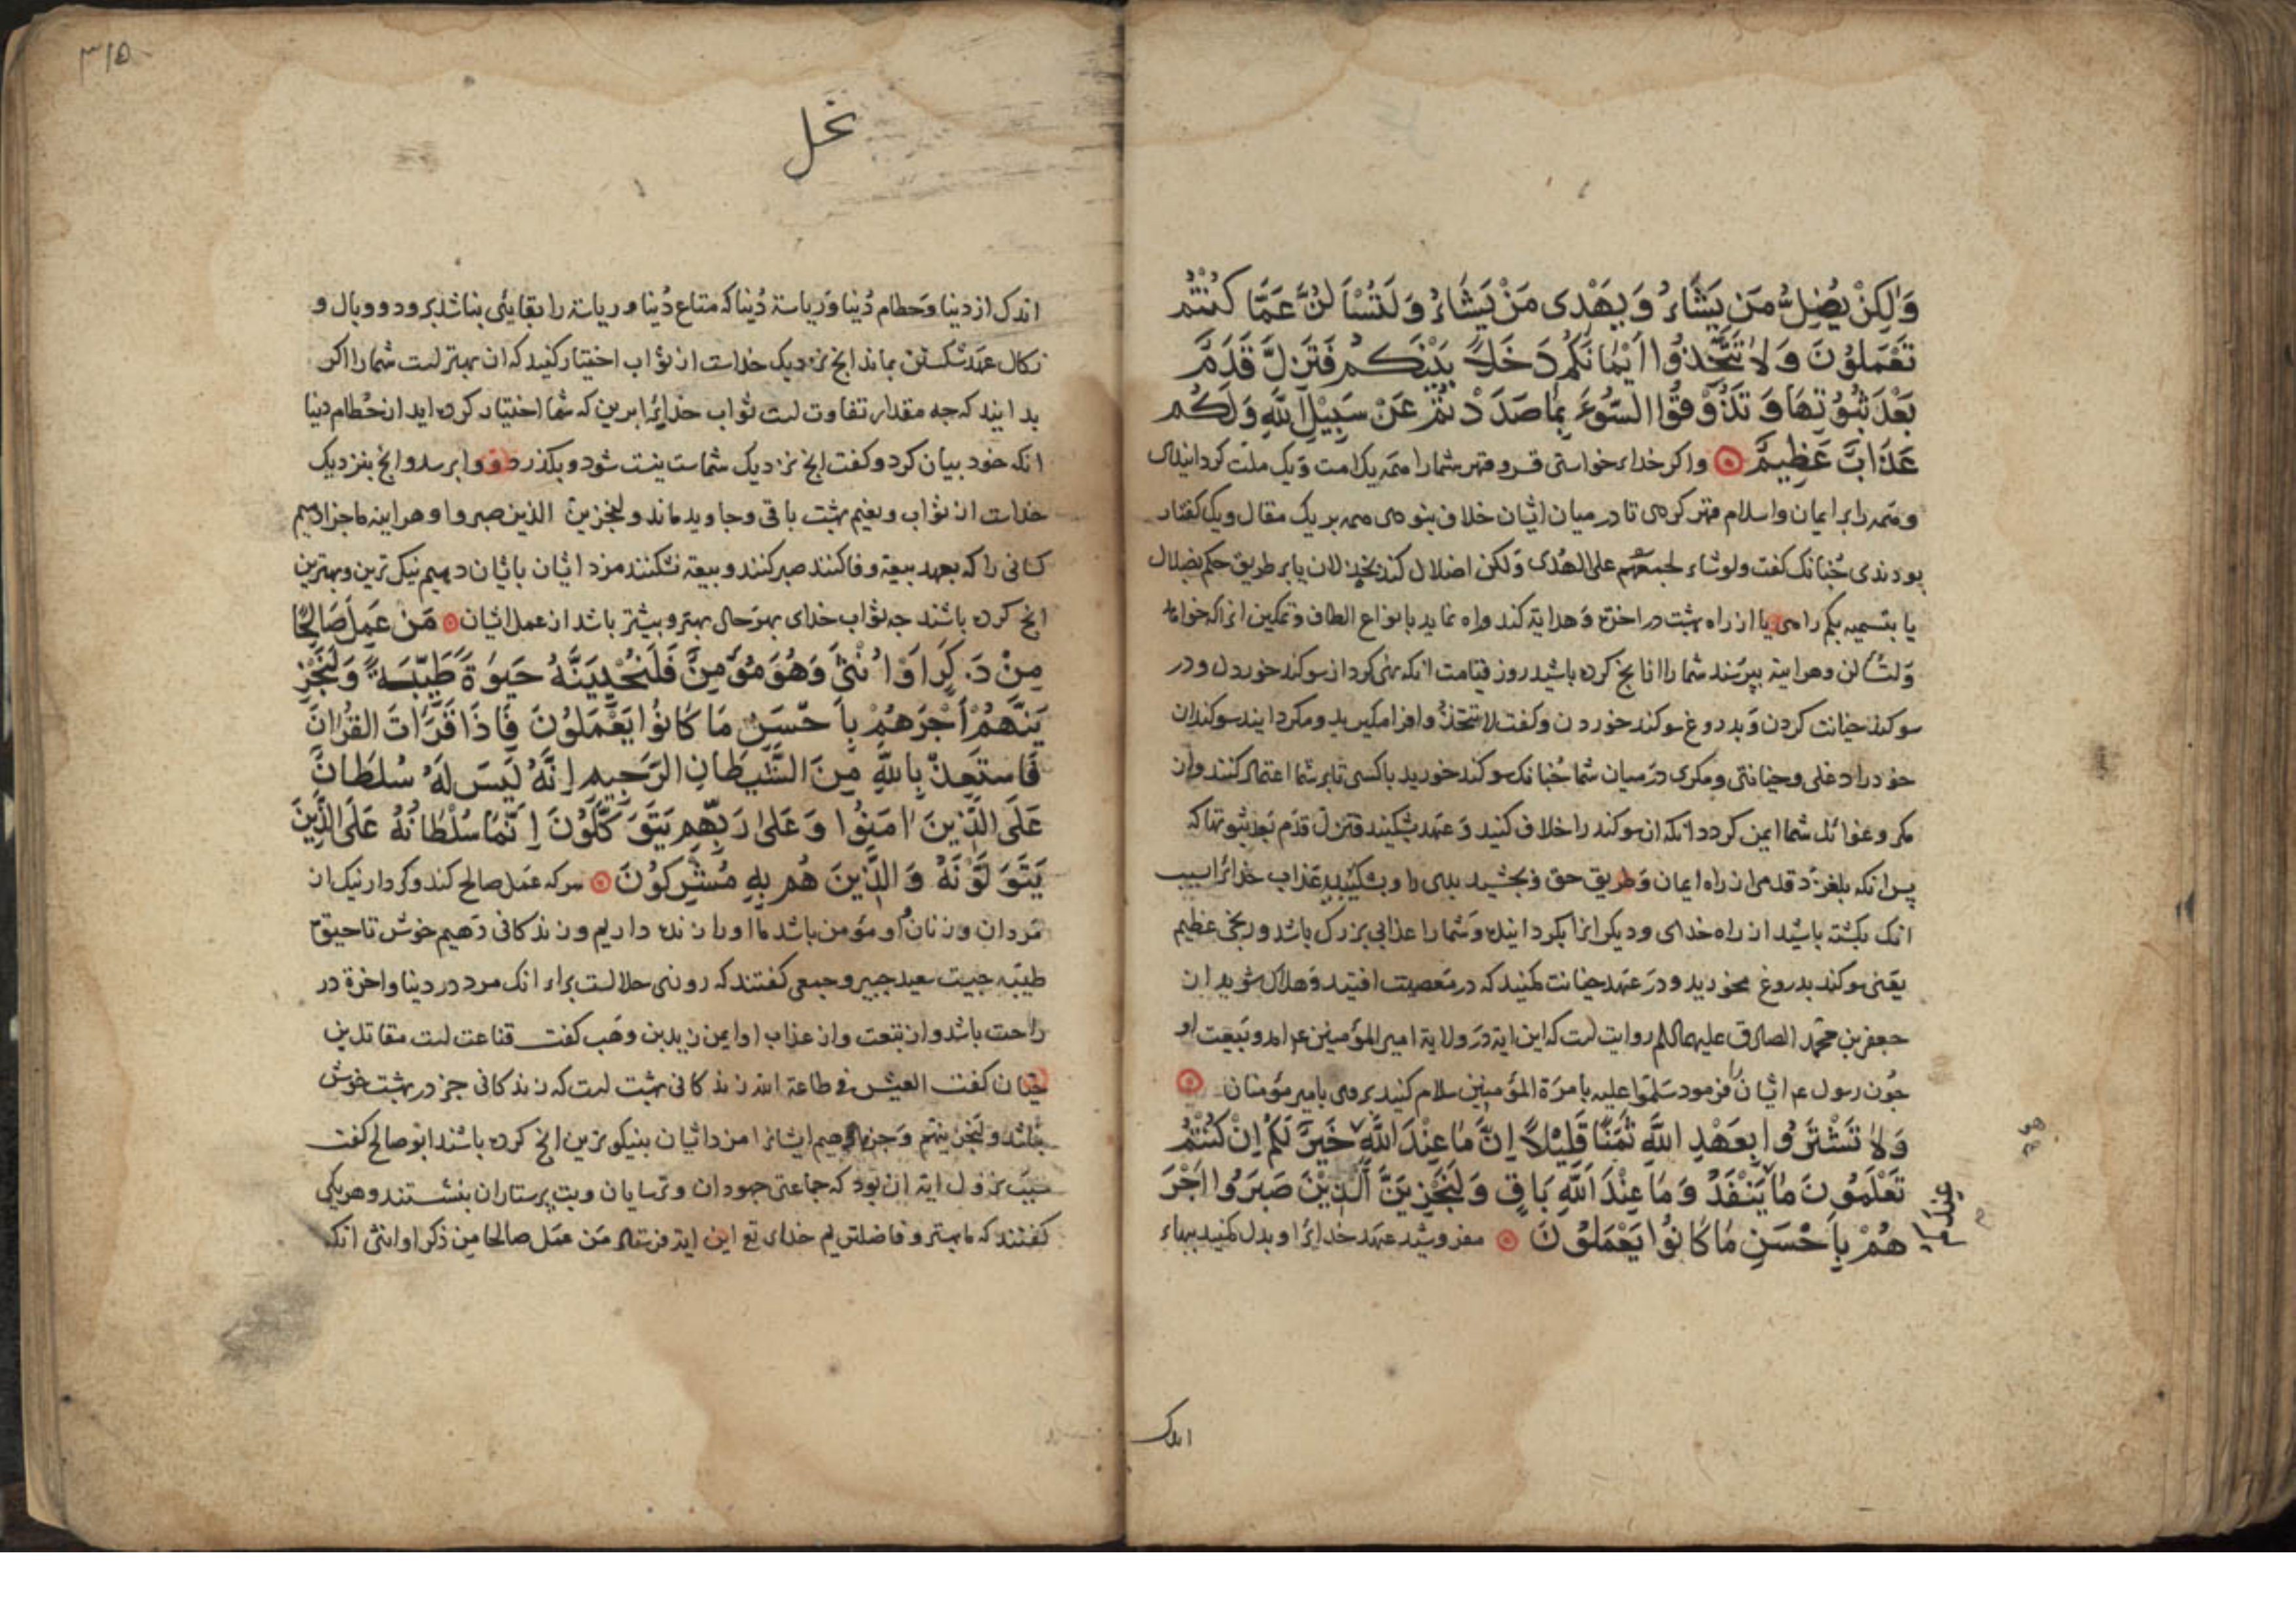 وَلٰكِنْ يُضِلُّ مَن يَشَاءُ وَيَهْدِى مَنْ يَشَاءُ وَلَتُسْأَلُنَّ عَمَّا كُنْتُمْ
تَعْمَلُونَ وَلَا تَتَّخِذُوا اَيْمَانَكُمْ دَخَلًا بَيْنَكُمْ فَتَزِلَّ قَدَمٌ
بَعْدَ ثُبُوْتِهَا وَ تَذُوْقُوا السُّوْءَ بِمَا صَدَدْتُمْ عَنْ سَبِيْلِ اللَّهِ وَلَكُم
عَذَابٌ عَظِيمٌ واكر خداى خواستى قسر و قهر شما را همه يك امت و يك ملت كردانيدى
و همه را بر ايمان و اسلام قهر كردى تا در ميان ايشان خلاف نبودى همه بر يك مقال و يك كفتار
بودندى چنانك كفت ولوشاء لجمعهم على الهدى ولكن اضلال كند بخذلان يا بر طريق حكم بضلال
يا بتسميه يا از راه بهشت در اخرة و هداية كند و راه نمايد بانواع الطاف و تمكين انرا كه خواهد
وَلتسألن وهراينه بپرسند شما را از انچ كرده باشيد روز قيامت انكه نهى كرد از سوكند خوردن و در
سوكند خيانت كردن و بدروغ سوكند خوردن و كفت لا تتخذوا فرا مكيريد و مكردانيد سوكندان
خود را دغلى و خيانتى و مكرى در ميان شما چنانك سوكند خوريد با كسى تا بر شما اعتماد كنند و از
مكر و غوائل شما ايمن كردد انكه ان سوكند را خلاف كنيد و عهد بشكنيد فتزل قدم بعد ثبوتها كه
پس انكه بلغزد قدمى از راه ايمان و طريق حق و بچشيد بدى عذاب خدايرا بسبب
انك بكشته باشيد از راه خداى و ديكرانرا بكردانيده و شما را عذابى بزرك باشد و رنجى عظيم
يعنى سوكند بدروغ مخوريد و در عهد خيانت مكنيد كه در معصيت افتيد و هلاك شويد از
جعفر بن محمد الصادق عليهما السلم روايت است كه اين اية در ولاية امير المؤمنين ع امد و بيعت او
چون رسول ع ايشان را فرمود سلموا عليه بامرة المؤمنين سلام كنيد بر وى بامير مؤمنان
وَلَا تَشْتَرُوا بِعَهْدِ اللَّهِ ثَمَنًا قَلِيْلًا اِنَّ مَا عِنْدَ اللَّهِ خَيْرٌ لَكُمْ اِنْ كُنْتُمْ
تَعْلَمُونَ مَا يَنْفَدُ وَ مَا عِنْدَ اللَّهِ بَاقٍ وَلَنَجْزِيَنَّ الَّذِيْنَ صَبَرُوا اَجْرَ
هُمْ بِاَحْسَنِ مَا كَانُوا يَعْمَلُوْنَ مفروشيد عهد خدايرا و بدل مكنيد ببهاء
اندك
٣١٥
نحل
اندك از دنيا و حطام دُنيا و رياسة دُنيا كه متاع دُنيا و رياسة را بقايى نباشد برود و وبال و
نكال عهد شكستن بماند انچ نزديك خداست از ثواب اختيار كنيد كه ان بهتر است شما را اكر
بدانيد كه چه مقدار تفاوت است ثواب خدايرا برين كه شما اختيار كرده ايد از حُطام دنيا
انكه خود بيان كرد و كفت انچ نزديك شماست نيست شود و بكذرد و برسد و انچ بنزديك
خداست از ثواب و نعيم بهشت باقى و جاويد ماند و لنجزين الذين صبروا و هراينه ما جزا دهيم
كسانى را كه بعهد بيعة وفا كنند صبر كنند و بيعة نشكنند مزد ايشان بايشان دهيم نيك ترين و بهترين
انچ كرده باشند چه ثواب خداى بهر حال بهتر و بيشتر باشد از عمل ايشان مَنْ عَمِلَ صَالِحًا
مِنْ ذَكَرٍ اَوْ اُنْثَىٰ وَهُوَ مُؤْمِنٌ فَلَنُحْيِيَنَّهُ حَيٰوةً طَيِّبَةً وَلَنَجْزِ
يَنَّهُمْ اَجْرَهُمْ بِاَحْسَنِ مَا كَانُوا يَعْمَلُوْنَ فَاِذَا قَرَأْتَ الْقُرْاٰنَ
فَاسْتَعِذْ بِاللَّهِ مِنَ الشَّيْطَانِ الرَّجِيمِ اِنَّهُ لَيْسَ لَهُ سُلْطَانٌ
عَلَى الَّذِيْنَ اٰمَنُوْا وَ عَلَىٰ رَبِّهِمْ يَتَوَكَّلُوْنَ اِنَّمَا سُلْطَانُهُ عَلَى الَّذِيْنَ
يَتَوَلَّوْنَهُ وَ الَّذِيْنَ هُم بِهِ مُشْرِكُوْنَ هر كه عمل صالح كند و كردار نيك از
مردان و زنان او مؤمن باشد ما او را زنده داريم و زندكانى دهيم خوش تا حيوة
طيبه چيست سعيد جبير و جمعى كفتند كه روزى حلالست براى انك مرد در دينا و اخرة در
راحت باشد و از تبعت و از عذاب او ايمن زيد بن وهب كفت قناعت است مقاتل بن
حيان كفت العيش فى طاعة الله زندكانى بهشت است كه زندكانى جز در بهشت خوش
نباشد و لنجزينهم و جزا دهيم ايشانرا مزد ايشان بنيكوترين انچ كرده باشند ابو صالح كفت
سبب نزول اية ان بود كه جماعتى جهودان و ترسايان و بت پرستاران بنشستند و هر يكى
كفتند كه ما بهتر و فاضلتريم خداى تع اين اية فرستاد من عمل صالحا من ذكر او انثى انكه